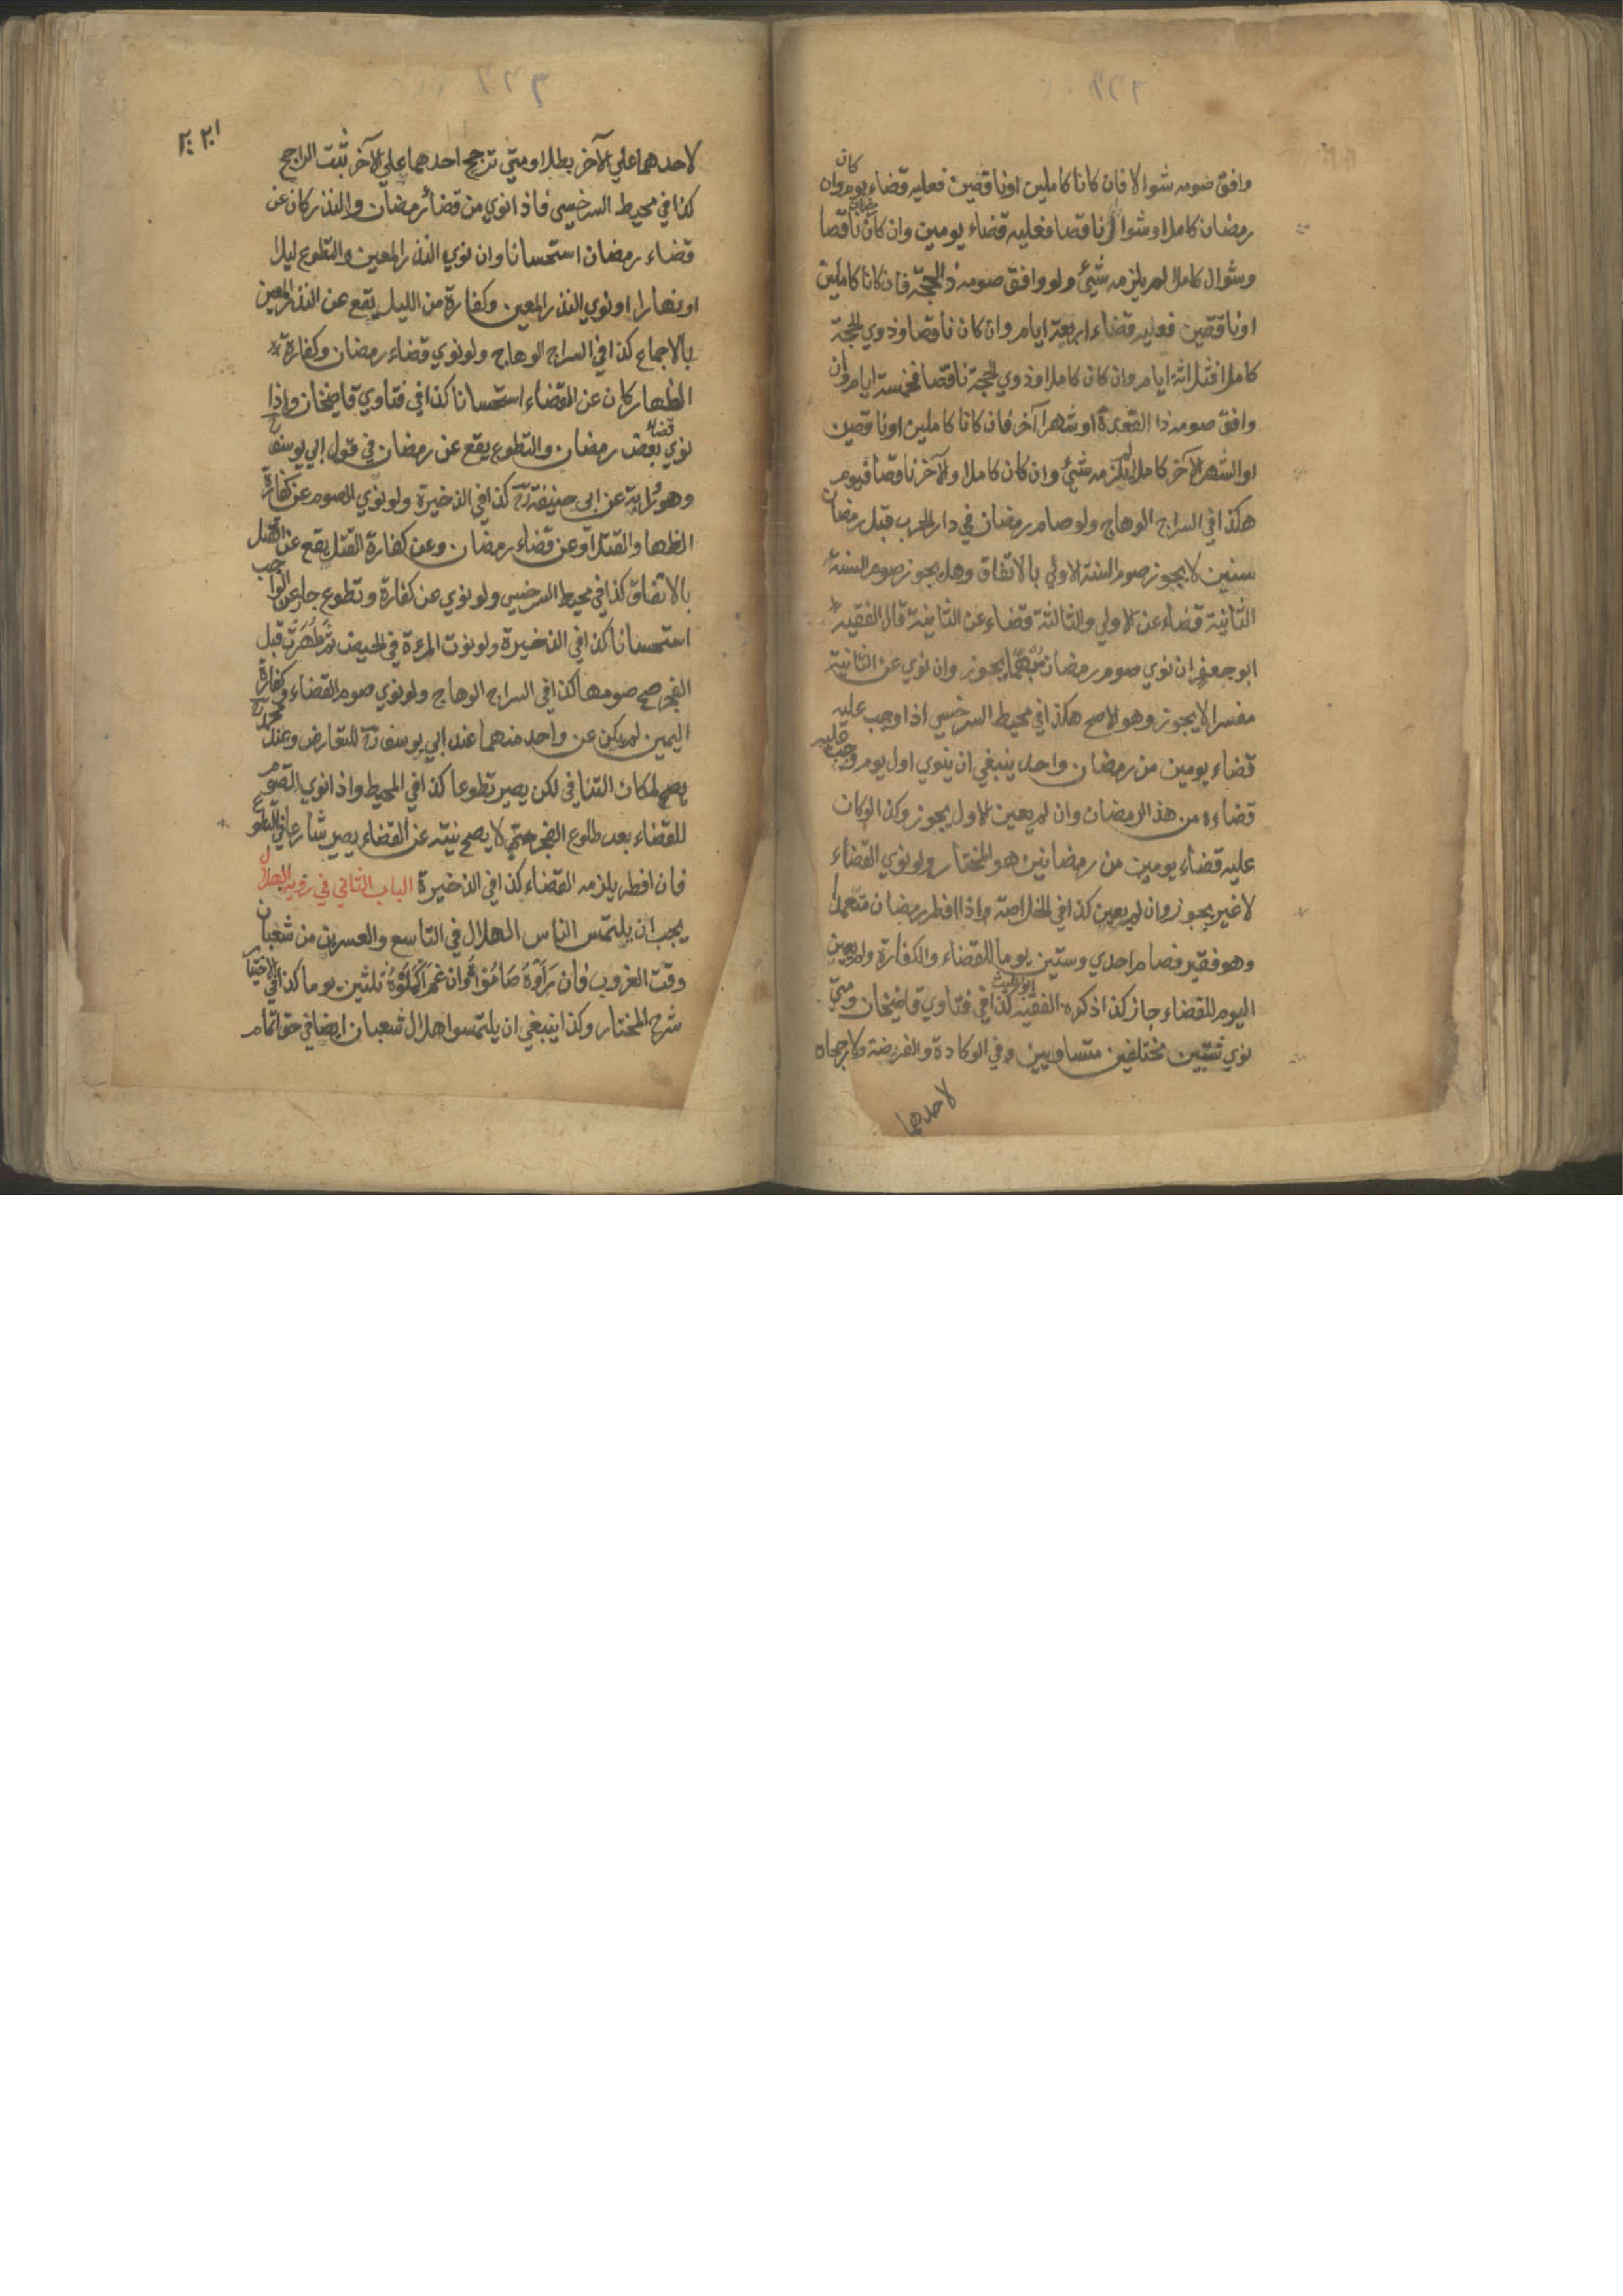 وافق صومه شوالا فان كانا كاملين اوناقصين فعليه قضاء يوم وان كان
رمضان كاملا وشوال ناقصا فعليه قضاء يومين وان كان رمضان ناقصا
وشوال كاملا لم يلزمه شيئ ولو وافق صومه ذا الحجة فان كانا كاملين
اوناقصين فعليه قضاء اربعة ايام وان كان ناقصا وذوي الحجة
كاملا فثلاثة ايام وان كان كاملا وذوي الحجة ناقصا فخمسة ايام وان
وافق صومه ذا القعدة او شهرا آخر فان كانا كاملين اوناقصين
او الشهر الآخر كاملا لم يلزمه شيئ وان كان كاملا والآخر ناقصا فيوم
هكذا في السراج الوهاج ولو صام رمضان في دار الحرب قبل رمضان
سنين لا يجوز صوم السنة الاولي بالاتفاق وهل يجوز صوم السنة
الثانية قضاء عن الاولي والثالثة قضاء عن الثانية قال الفقيه
ابو جعفر ان نوي صوم رمضان مبهما يجوز وان نوي عن الثانية
مفسرا لا يجوز وهو الاصح هكذا في محيط السرخسي اذا وجب عليه
قضاء يومين من رمضان واحد ينبغي ان ينوي اول يوم وجب عليه
قضاءه من هذا الرمضان وان لم يعين الاول يجوز وكذا لو كان
عليه قضاء يومين من رمضانين هو المختار ولو نوي القضاء
لاغير يجوز وان لم يعين كذا في الخلاصة واذا افطر رمضان متعمدا
وهو فقير فصام احدي وستين يوما للقضاء والكفارة ولم يعين
اليوم للقضاء جاز كذا ذكره الفقيه ابو الليث كذا في فتاوي قاضيخان ومتي
نوي شيئين مختلفين متساويين في الوكادة والفريضة ولا رجحان
لاحدهما
لاحدهما علي الآخر بطلا ومتي ترجح احدهما علي الآخر ثبت الراجح
كذا في محيط السرخسي فاذا نوي من قضاء رمضان والنذر كان عن
قضاء رمضان استحسانا وان نوي النذر المعين والتطوع ليلا
او نهارا او نوي النذر المعين وكفارة من الليل يقع عن النذر المعين
بالاجماع كذا في السراج الوهاج ولو نوي قضاء رمضان وكفارة
الظهار كان عن القضاء استحسانا كذا في فتاوي قاضيخان واذا
نوي قضاء بعض رمضان والتطوع يقع عن رمضان في قول ابي يوسف رح
وهو رواية عن ابي حنيفة رح كذا في الذخيرة ولو نوي الصوم عن كفارة
الظها والقتل او عن قضاء رمضان وعن كفارة القتل يقع عن القتل
بالاتفاق كذا في محيط السرخسي ولو نوي عن كفارة وتطوع جاز عن الواجب
استحسانا كذا في الذخيرة ولو نوت المرءة في الحيض ثم طهرت قبل
الفجر صح صومها كذا في السراج الوهاج ولو نوي صوم القضاء وكفارة
اليمين لم يكن عن واحد منهما عند ابي يوسف رح للتعارض وعند محمد رح
يصح لمكان التنافي لكن يصير تطوعا كذا في المحيط واذا نوي الصوم
للقضاء بعد طلوع الفجر حتي لا يصح نيته عن القضاء يصير شارعا في التطوع
فان افطر يلزمه القضاء كذا في الذخيرة الباب الثاني في رؤية الهلال
يجب ان يلتمس الناس الهلال في التاسع والعسرين من شعبان
وقت الغروب فان رأوه صاموا وان غم اكملوه ثلثين يوما كذا في الاختيار
شرح المختار وكذا ينبغي ان يلتمسوا هلال شعبان ايضا في حق اتمام